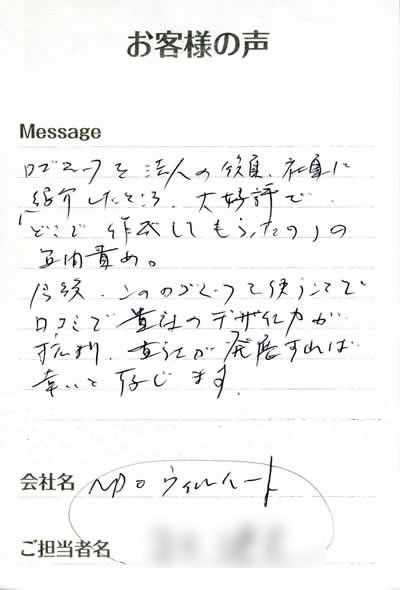 お客様の声
Message
ロゴマークを法人の役員、社員に
紹介したところ、大好評で
「どこで作成してもらったの」の
質問責め。
今後、このロゴマークを使うことで
口コミで貴社のデザイン力が
広がり、貴社が発展すれば
幸いと存じます。
会社名 NPO ウィルハート
ご担当者名